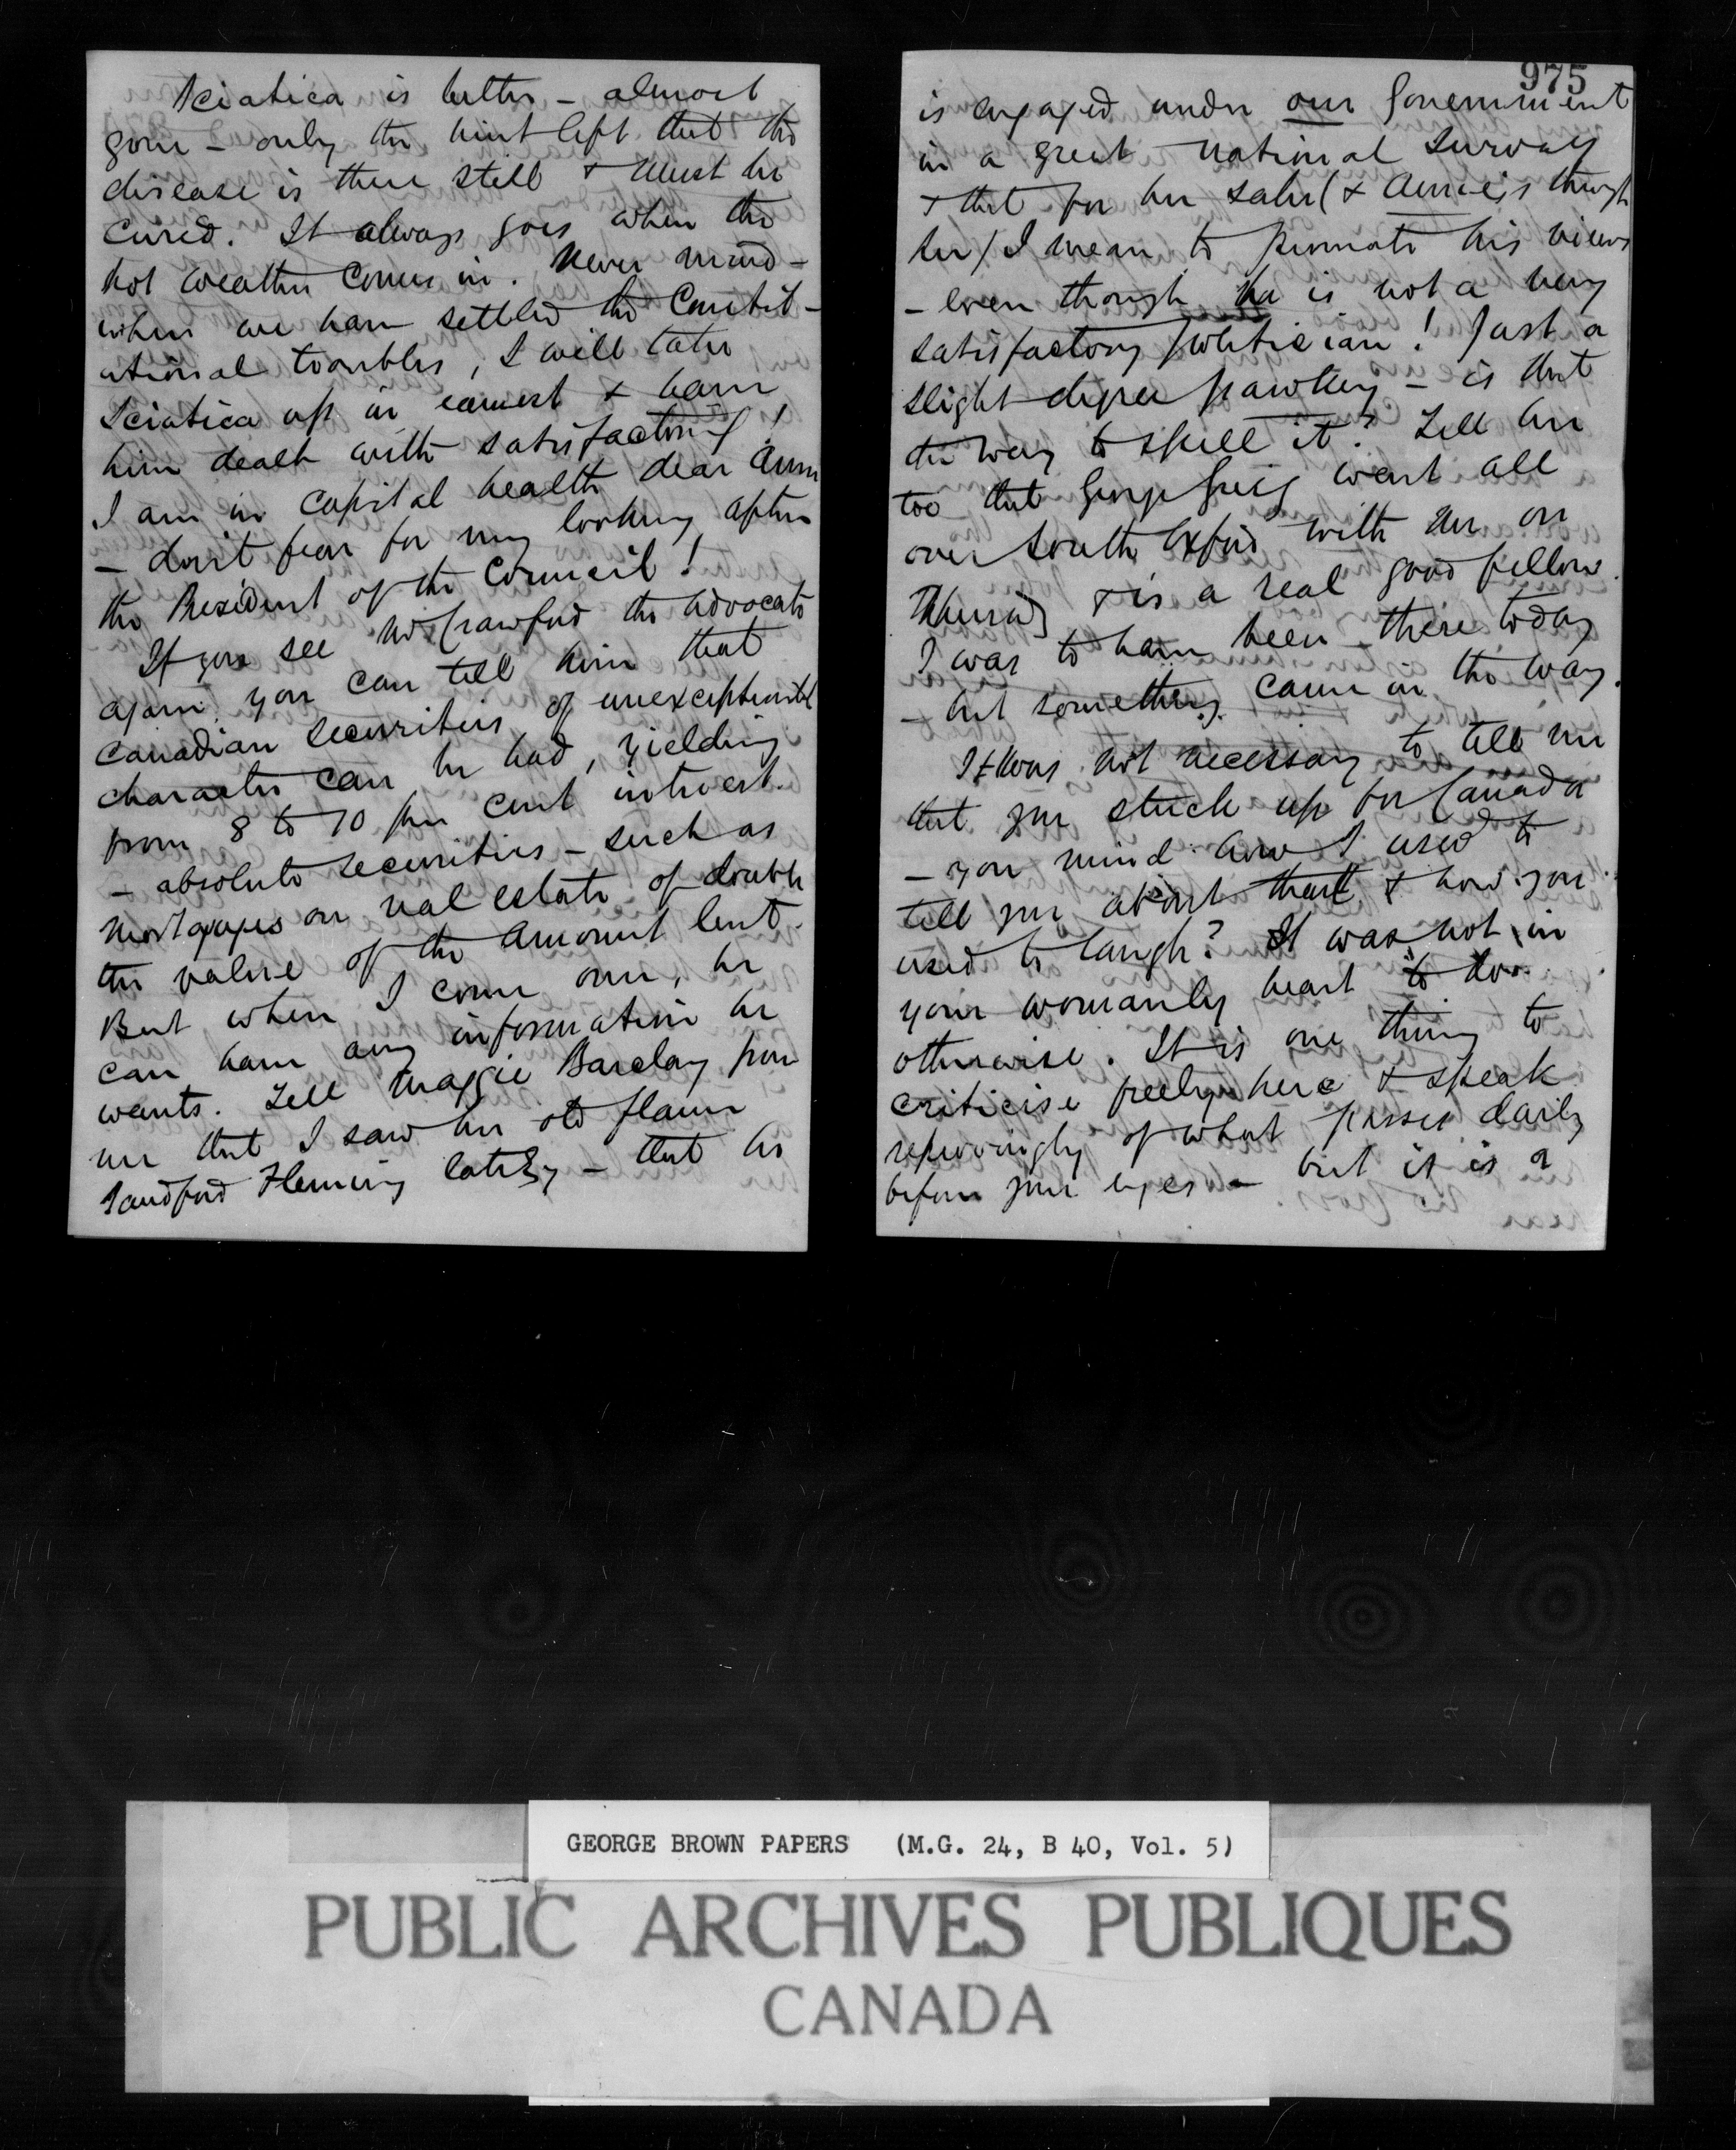 Sciatica is better – almost
gone – only the hint left that the
disease is there still & must be
cured. It always goes when the
hot weather comes in. Never mind –
when we have settled the Constit-
utional troubles, I will take
Sciatica up in earnest & have
him dealt with satisfactorily!
I am in capital health dear Anne
– don't fear for my looking after
the President of the Council!
If you see Mr Crawford the advocate
again, you can tell him that
Canadian securities of unexceptionable
character can be had, yielding
from 8 to 10 per cent interest.
– absolute securities – such as
mortgages on real estate of double
the value of the amount lent.
But when I come over, he
can have any information he
wants. Tell Maggie Barclay from
me that I saw her old flame
Sandford Fleming lately – that he
975
is engaged under our Government
in a great national survey
& that for her sake (& Annie's through
her) I mean to promote his views
– even though he is not a very
satisfactory politician! Just a
slight degree pawkey – is that
the way to spell it? Tell her
too that George Greig went all
over South Oxford with me on
Thursday & is a real good fellow.
I was to have been there today
– but something came in the way.
It was not necessary to tell me
that you stuck up for Canada
– you mind how I used to
tell you about that & how you
used to laugh? It was not in
your womanly heart to do
otherwise. It is one thing to
criticise freely here & speak
reprovingly of what passes daily
before your eyes – but it is a
GEORGE BROWN PAPERS (M.G. 24, B 40, Vol. 5)
PUBLIC ARCHIVES PUBLIQUES
CANADA